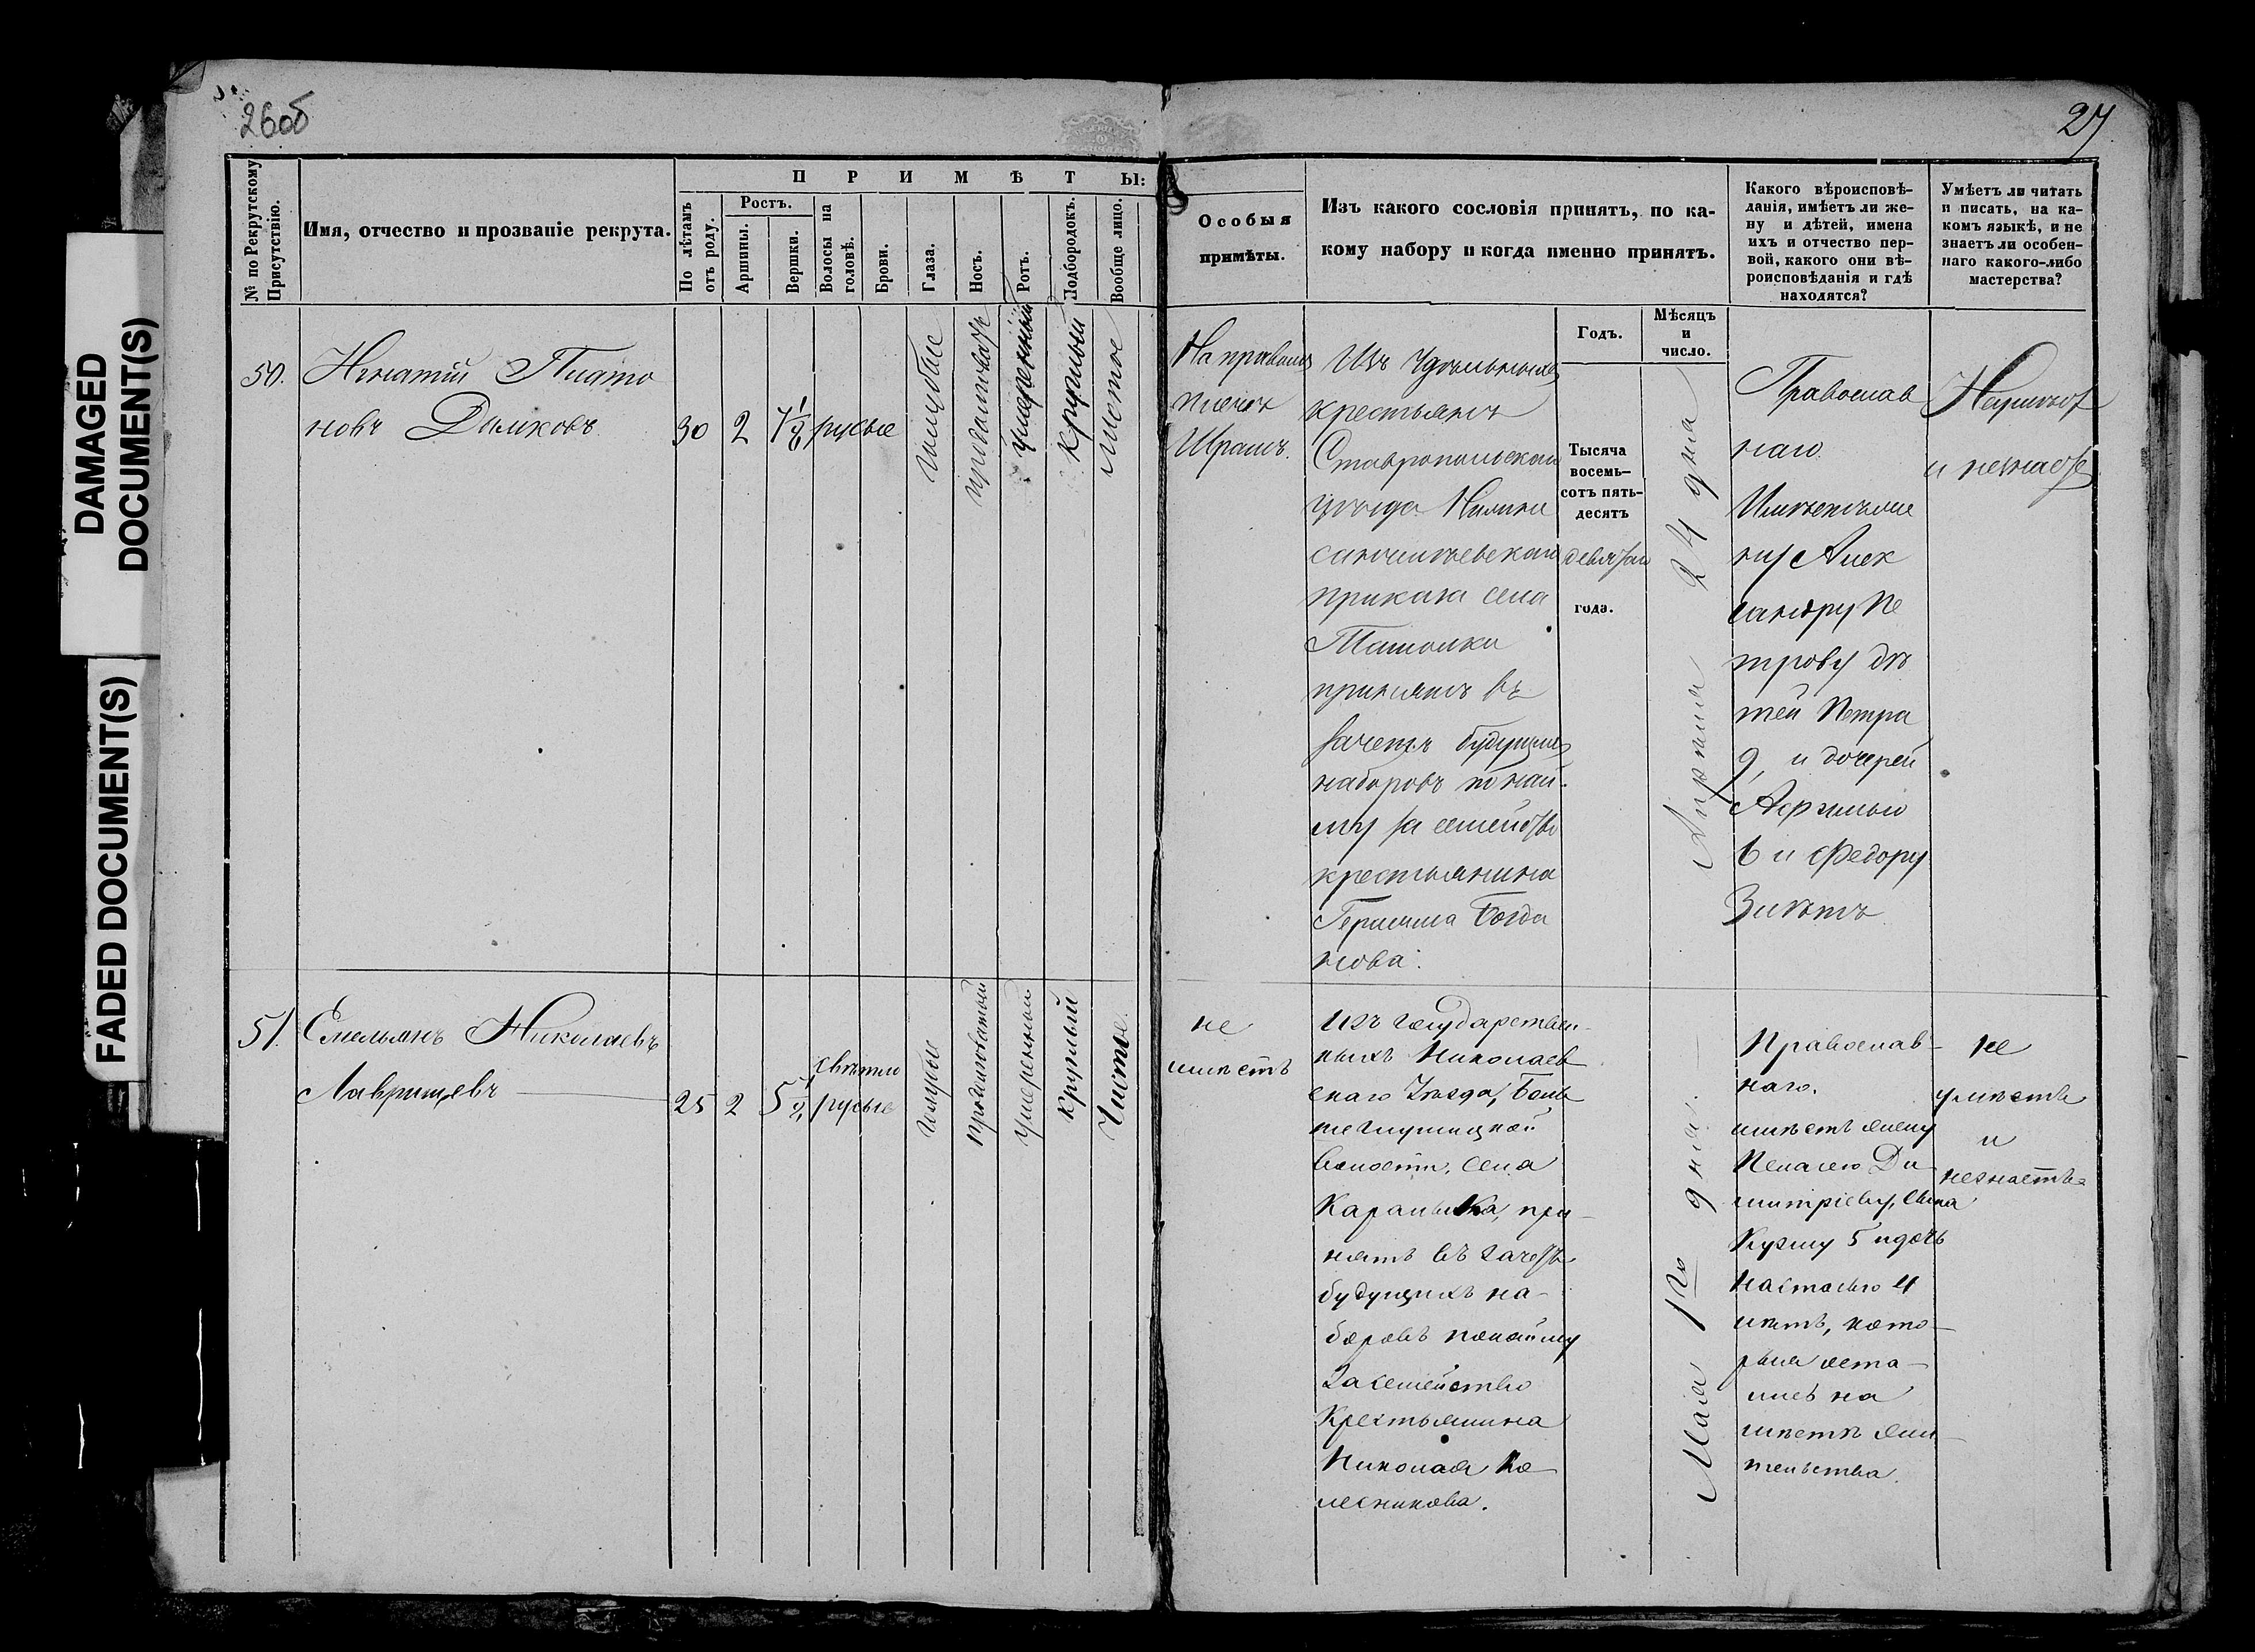 DAMAGED
DOCUMENT(S)
FADED DOCUMENT(S)
26об
27
№ по Рекрутскому Присутствію.
Имя, отчество и прозваніе рекрута.
ПРИМѢТЫ:
По лѣтамъ отъ роду.
Ростъ.
Аршины.
Вершки.
Волосы на головѣ.
Брови.
Глаза.
Носъ.
Ротъ.
Подбородокъ.
Вообще лицо.
Особыя
примѣты.
Изъ какого сословія принятъ, по ка-
кому набору и когда именно принятъ.
Годъ.
Мѣсяцъ
и
число.
Какого вѣроисповѣ-
данія, имѣетъ ли же-
ну и дѣтей, имена
ихъ и отчество пер-
вой, какого они вѣ-
роисповѣданія и гдѣ
находятся?
Умѣетъ ли читать
и писать, на ка-
комъ языкѣ, и не
знаетъ ли особен-
наго какого-либо
мастерства?
50.
Игнатій Плато
новъ
30
2
7 1/8
русые
голубые
умеренный
круглый
чистое
На правомъ
плечѣ
Шрамъ.
Изъ Удѣльныхъ
крестьянъ
Ставропольскаго
уѣзда
приказа села
Ташолки
принятъ въ
зачетъ будущихъ
наборовъ по най-
му за семейство
крестьянина
Герасима Богда
нова.
Тысяча
восемь-
сотъ пять-
десятъ
девятаго
года.
Апреля 24 дня
Православ
наго.
Имѣетъ же
ну Алек
сандру Пе
трову дѣ
тей Петра
9, и дочерей
6 и Федору
3 лѣтъ
и незнаетъ
51.
Емельянъ Николаевъ
Лаврищевъ
25
2
5 1/2
свѣтло
русые
голубые
продолговатый
умеренной
круглый
Чистое.
не
имѣетъ
изъ государствен-
ныхъ Николаев
скаго Уѣзда, Боль
шеглушицкой
волости, села
Каралыка, при-
нятъ въ зачетъ
будущихъ на-
боровъ понайму
за семейство
Крестьянина
Николая Ко
лесникова.
Маія 1го дня.
Православ-
наго.
имѣетъ жену
Пелагею Ди
митріеву, сына
Кузму 5 и дочь
Настасью 4
лѣтъ, кото-
рыя оста-
лись на
мѣстѣ жи-
тельства.
не
умѣетъ
и
незнаетъ